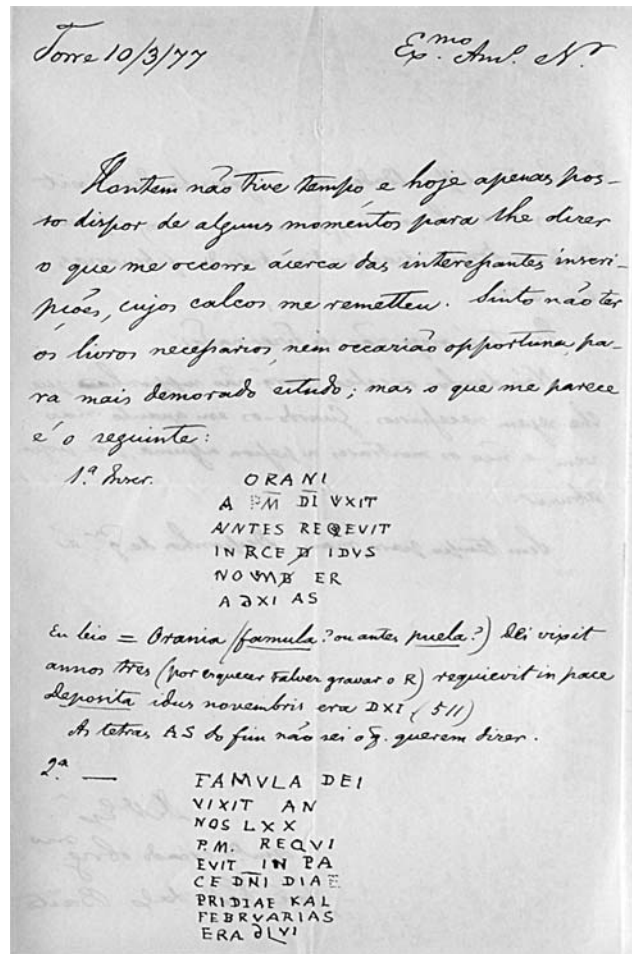 Torre 10/3/77 Ex.mo Am.o N.
Hontem não tive tempo e hoje apenas pos-
so dispor de alguns momentos para lhe dizer
o que me occorre ácerca das interessantes inscri-
pções, cujos calcos me remetteu. Sinto não ter
os livros necessarios, nem occazião opportuna, pa-
ra mais demorado estudo; mas o que me parece
é o seguinte:
1.ª Inscr. ORANI
A PM DI VXIT
ANTES REQEVIT
IN RCE D IDVS
NOVMB ER
A DXI AS
Eu leio = Orania (famula? ou antes puela?) Dei vixit
annos tres (por esquecer talvez gravar o R) requievit in pace
deposita idus novembris era DXI (511)
As letras AS do fim não sei o q. querem dizer.
2.ª — FAMVLA DEI
VIXIT AN
NOS LXX
P.M. REQVI
EVIT IN PA
CE DÑI DIAE
PRIDIAE KAL
FEBRVARIAS
ERA DLVI